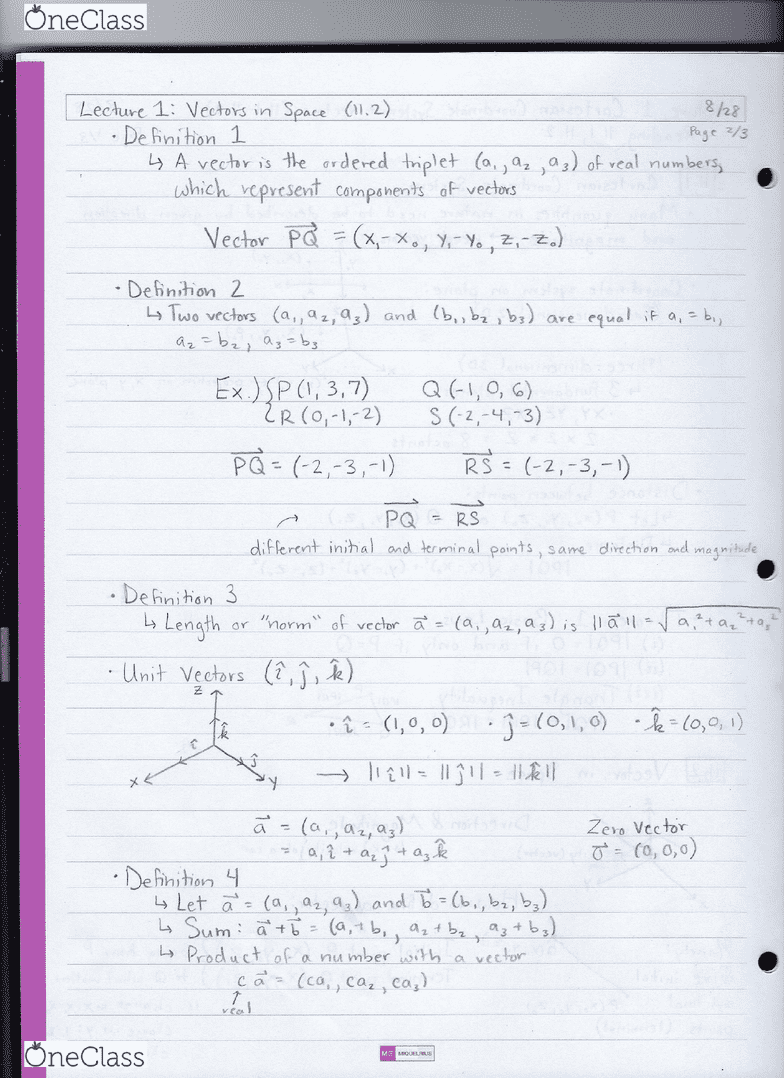 OneClass
Lecture 1: Vectors in Space (11.2) 8/28
Page 2/3
· Definition 1
↳ A vector is the ordered triplet (a₁, a₂, a₃) of real numbers,
which represent components of vectors
Vector PQ⃗ = (x₁-x₀, y₁-y₀, z₁-z₀)
· Definition 2
↳ Two vectors (a₁, a₂, a₃) and (b₁, b₂, b₃) are equal if a₁ = b₁,
a₂ = b₂, a₃ = b₃
Ex.) { P(1, 3, 7) Q(-1, 0, 6)
R(0, -1, -2) S(-2, -4, -3)
PQ⃗ = (-2, -3, -1) RS⃗ = (-2, -3, -1)
PQ⃗ = RS⃗
different initial and terminal points, same direction and magnitude
· Definition 3
↳ Length or "norm" of vector a⃗ = (a₁, a₂, a₃) is ||a⃗|| = √a₁² + a₂² + a₃²
· Unit Vectors (î, ĵ, k̂)
z
k̂
î
ĵ
x
y
· î = (1, 0, 0) · ĵ = (0, 1, 0) · k̂ = (0, 0, 1)
→ ||î|| = ||ĵ|| = ||k̂||
a⃗ = (a₁, a₂, a₃) Zero Vector
= a₁î + a₂ĵ + a₃k̂ 0⃗ = (0, 0, 0)
· Definition 4
↳ Let a⃗ = (a₁, a₂, a₃) and b⃗ = (b₁, b₂, b₃)
↳ Sum: a⃗ + b⃗ = (a₁ + b₁, a₂ + b₂, a₃ + b₃)
↳ Product of a number with a vector
c a⃗ = (ca₁, ca₂, ca₃)
↑
real
OneClass
MIQUELRIUS